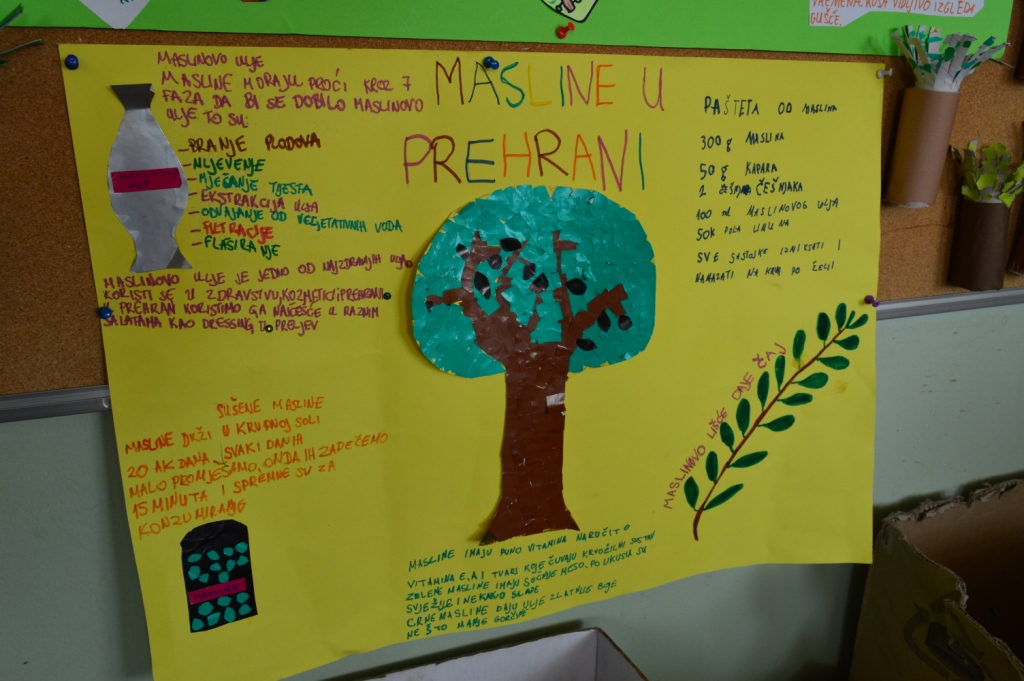 VREMENA. ROSA VIDLJIVO IZGLEDA
GUŠĆE.
MASLINE U
PREHRANI
MASLINOVO ULJE
MASLINE MORAJU PROĆI KROZ 7
FAZA DA BI SE DOBILO MASLINOVO
ULJE TO SU:
-BRANJE PLODOVA
-MLJEVENJE
-MJEŠANJE TIJESTA
-EKSTRAKCIJA ULJA
-ODVAJANJE OD VEGETATIVNIH VODA
-FILTRACIJE
-FLAŠIRANJE
MASLINOVO ULJE JE JEDNO OD NAJZDRAVIJIH ULJA
KORISTI SE U ZDRAVSTVU, KOZMETICI I PREHRANI
U PREHRANI KORISTIMO GA NAJČEŠĆE U RAZNIM
SALATAMA KAO DRESSING TJ PRELJEV
PAŠTETA OD MASLINA
300 g MASLINA
50 g KAPARA
2 ČEŠNJA ČEŠNJAKA
100 ml MASLINOVOG ULJA
SOK POLA LIMUNA
SVE SASTOJKE IZMIKSATI I
NAMAZATI NA KRUH PO ŽELJI
MASLINOVO LIŠĆE DAJE ČAJ
SUŠENE MASLINE
MASLINE DRŽI U KRUPNOJ SOLI
20 AK DANA, SVAKI DANIH
MALO PROMJEŠAMO, ONDA IH ZAPEČEMO
15 MINUTA I SPREMNE SU ZA
KONZUMIRANJE
MASLINE IMAJU PUNO VITAMINA NAROČITO
VITAMINA E, A I TVARI KOJE ČUVAJU KRVOŽILNI SUSTAV
ZELENE MASLINE IMAJU SOČNIJE MESO, PO UKUSU SU
SVJEŽIJE I NEKAKO SLANE
CRNE MASLINE DAJU ULJE ZLATNIJE BOJE
NEŠTO MANJE GORČINE